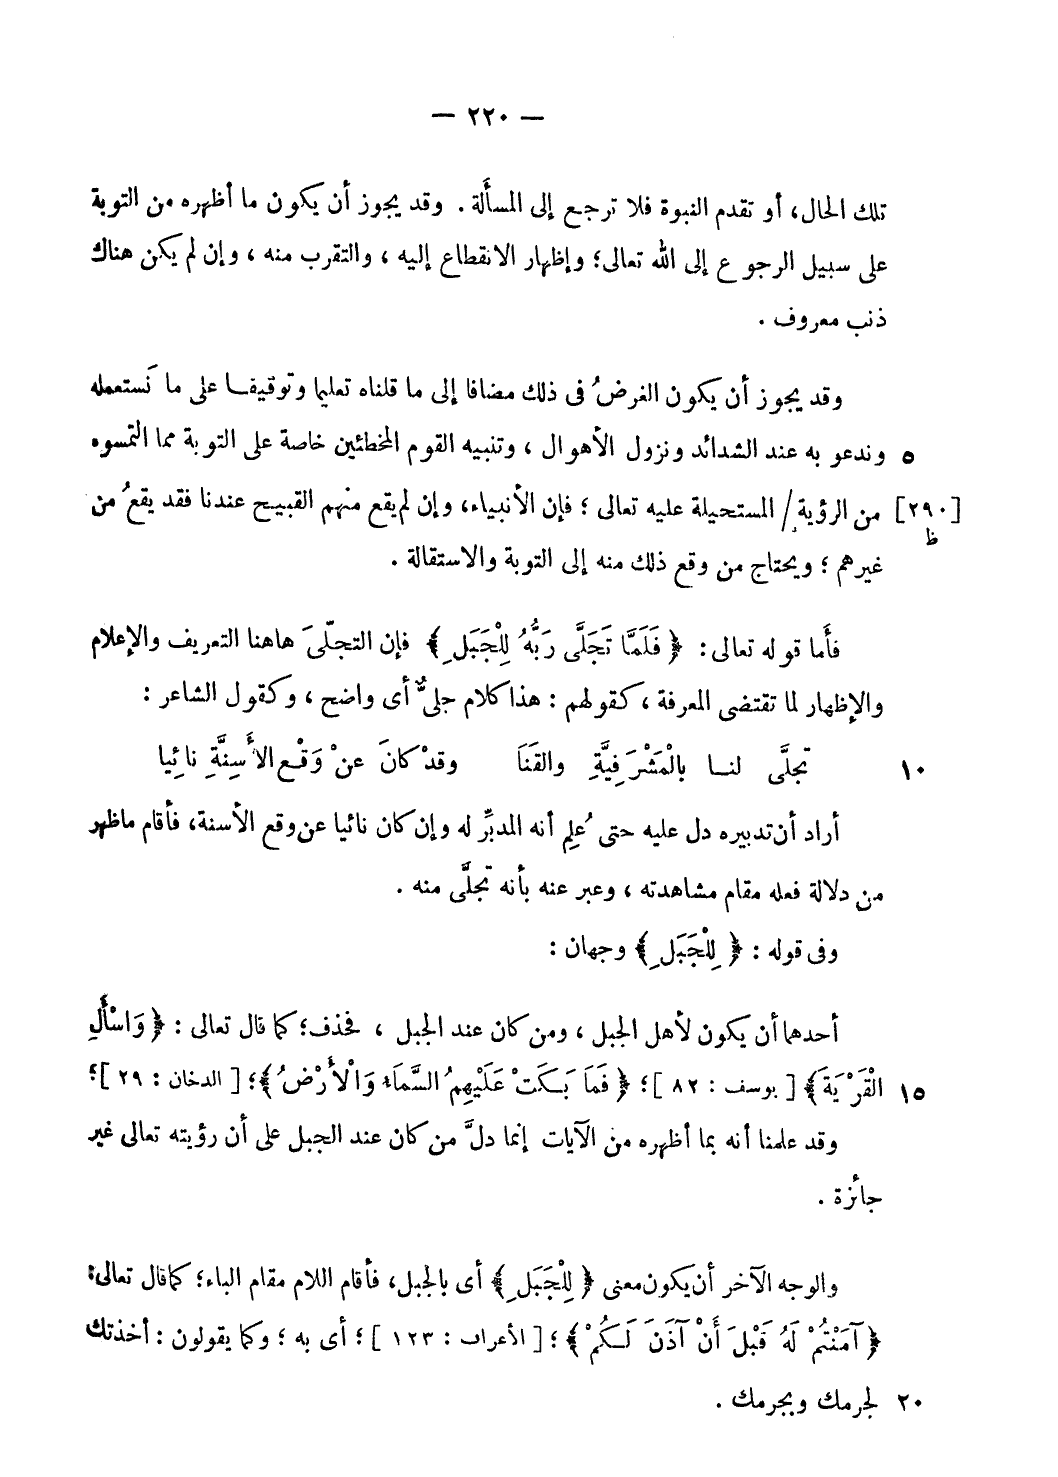 — ٢٢٠ —
تلك الحال، أو تقدم النبوة فلا ترجع إلى المسألة . وقد يجوز أن يكون ما أظهره من التوبة
على سبيل الرجوع إلى الله تعالى؛ وإظهار الانقطاع إليه ، والتقرب منه ، وإن لم يكن هناك
ذنب معروف .
وقد يجوز أن يكون الغرضُ فى ذلك مضافا إلى ما قلناه تعليما وتوقيفا على ما نَستعمله
٥ وندعو به عند الشدائد ونزول الأهوال ، وتنبيه القوم المخطئين خاصة على التوبة مما التمسوه
[٢٩٠ ظ] من الرؤية / المستحيلة عليه تعالى ؛ فإن الأنبياء، وإن لم يقع منهم القبيح عندنا فقد يقعُ من
غيرهم ؛ ويحتاج من وقع ذلك منه إلى التوبة والاستقالة .
فأما قوله تعالى: ﴿ فَلَمَّا تَجَلَّى رَبُّهُ لِلْجَبَلِ ﴾ فإن التجلّىَ هاهنا التعريف والإعلام
والإظهار لما تقتضى المعرفة ، كقولهم : هذا كلام جلىٌّ أى واضح ، وكقول الشاعر :
١٠ تجلَّى لنا بالْمَشْرَفِيَّةِ والقَنَا وقدْ كانَ عنْ وَقْعِ الأَسِنَّةِ نائِيا
أراد أن تدبيره دل عليه حتى عُلِم أنه المدبِّر له وإن كان نائيا عن وقع الأسنة، فأقام ماظهر
من دلالة فعله مقام مشاهدته ، وعبر عنه بأنه تجلَّى منه .
وفى قوله : ﴿ لِلْجَبَلِ ﴾ وجهان :
أحدهما أن يكون لأهل الجبل ، ومن كان عند الجبل ، فحذف؛ كما قال تعالى : ﴿ وَاسْأَلِ
١٥ الْقَرْيَةَ ﴾ [ يوسف : ٨٢ ]؛ ﴿ فَمَا بَكَتْ عَلَيْهِمُ السَّمَاءُ وَالْأَرْضُ ﴾؛ [ الدخان : ٢٩ ]؛
وقد علمنا أنه بما أظهره من الآيات إنما دلَّ من كان عند الجبل على أن رؤيته تعالى غير
جائزة .
والوجه الآخر أن يكون معنى ﴿ لِلْجَبَلِ ﴾ أى بالجبل، فأقام اللام مقام الباء؛ كما قال تعالى:
﴿ آمَنْتُمْ لَهُ قَبْلَ أَنْ آذَنَ لَكُمْ ﴾ ؛ [ الأعراف : ١٢٣ ] ؛ أى به ؛ وكما يقولون : أخذتك
٢٠ لجرمك وبجرمك .